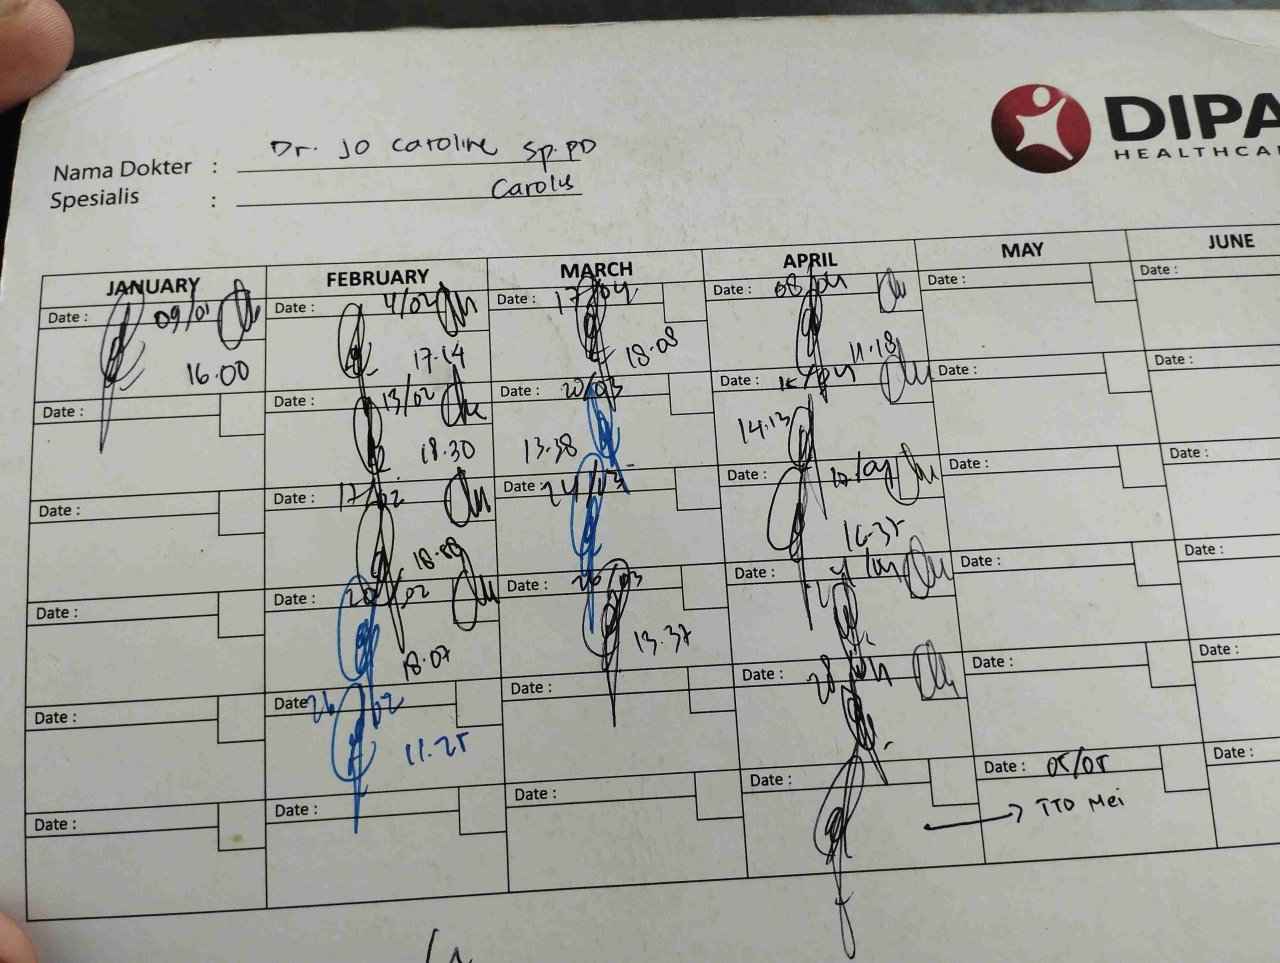 DIPA
HEALTHCA
Nama Dokter : Dr. JO Caroline Sp.PD
Spesialis : Carolus
JANUARY FEBRUARY MARCH APRIL MAY JUNE
Date : 09/01 Date : 4/02 Date : 17/04 Date : 08/04 Date : Date :
16.00 17.14 18.08 11.18
Date : Date : 13/02 Date : 20/03 Date : Date : Date :
18.30 13.38 14.13
Date : Date : 17/02 Date : 24/03 Date : Date : Date :
16.35
Date : Date : 20/02 Date : 26/03 Date : Date : Date :
18.07 13.37
Date : Date 26/02 Date : Date : 28/04 Date : Date :
11.25
Date : Date : Date : Date : Date : 05/05 Date :
TTD Mei